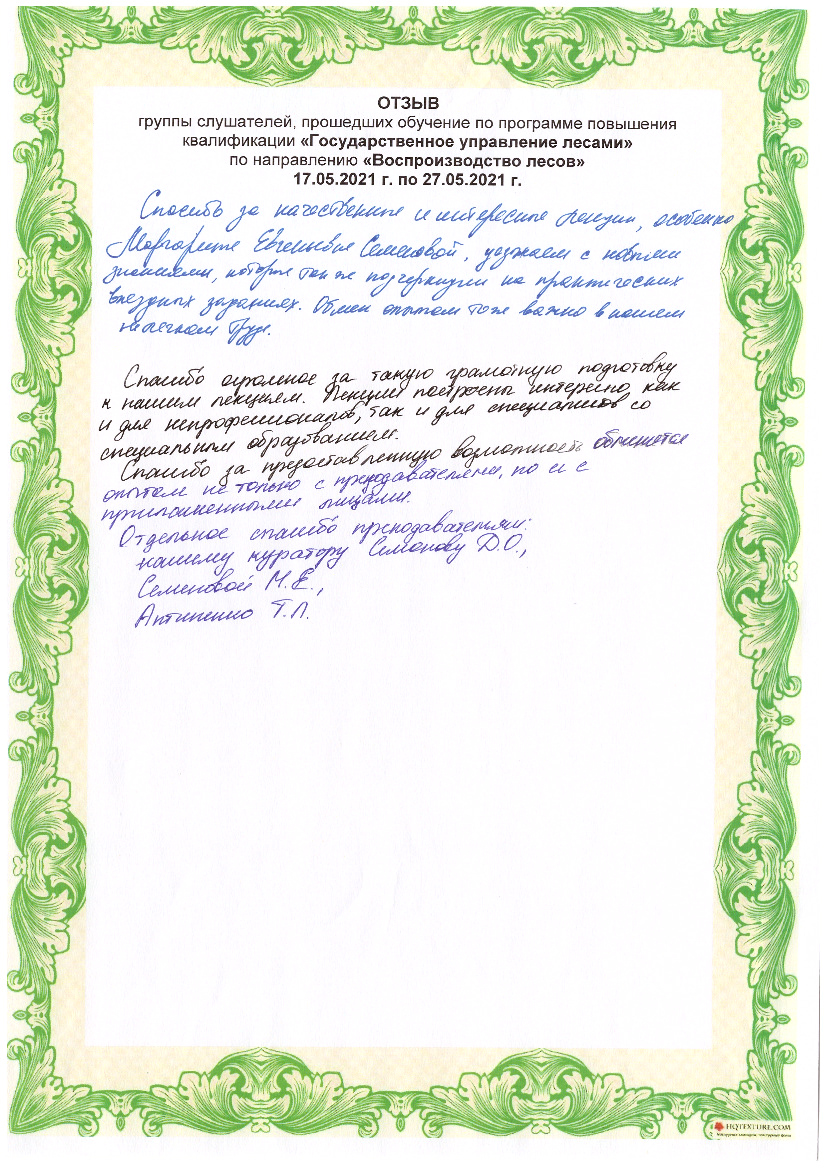 ОТЗЫВ
группы слушателей, прошедших обучение по программе повышения
квалификации «Государственное управление лесами»
по направлению «Воспроизводство лесов»
17.05.2021 г. по 27.05.2021 г.
Спасибо за качественные и интересные лекции, особенно
Маргарите Евгеньевне Семеновой, уезжаем с новыми
знаниями, которые так же подчеркнули на практических
выездных заданиях. Обмен опытом тоже важно в нашем
нелегком труде.
Спасибо огромное за такую грамотную подготовку
к нашим лекциям. Лекции построены интересно, как
и для непрофессионалов, так и для специалистов со
специальным образованием.
Спасибо за предоставленную возможность обменяться
опытом не только с преподавателями, но и с
приглашенными лицами.
Отдельное спасибо преподавателям:
нашему куратору Семенову Д.О.,
Семеновой М.Е.,
Т.Л.
HQTEXTURE.COM